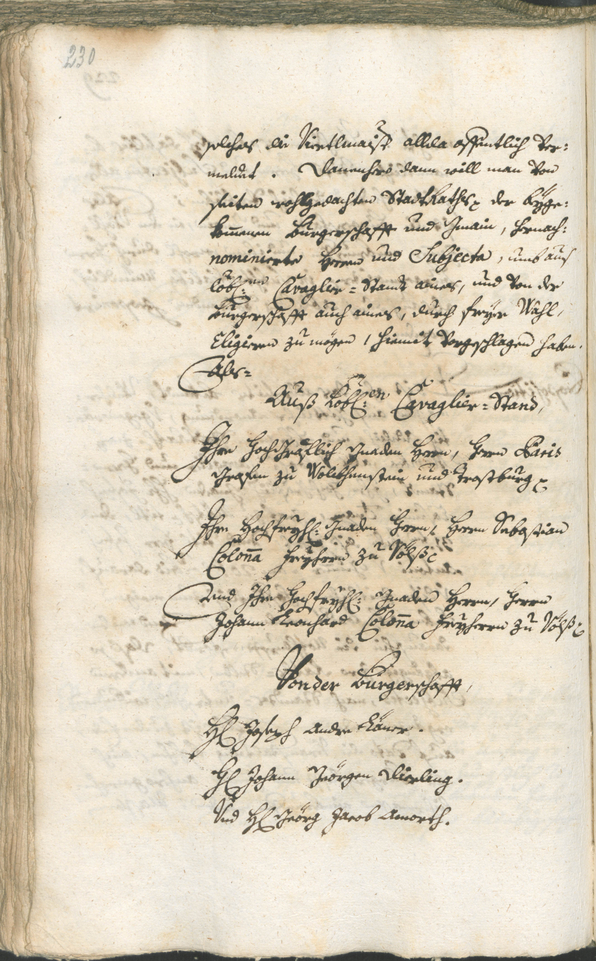 230
solches die Viertlmaister allda offentlich ver:
meldet. Dannenhero dann will man von
seiten wohlgedachten Stadt Raths, der beyge:
Burgerschafft und Gmain, hernach:
nominierte Herrn und Subjecta, umb auß
Löbl:en Cavaglier=Standt aines, und von der
Burgerschafft auch aines, durch freye Wahl,
Eligieren zu mögen, hiemit vorgeschlagen haben.
Als=
Auß Löbl:en Cavaglier=Stand,
Ihro Hochgräflich Gnaden Herrn, Herrn Paris
Grafen zu Wolckhenstein und Trostburg
Ihro Hochfreyh: Gnaden Herrn, Herrn Sebastian
Colonna Freyherrn zu Völß
Und Ihro Hochfreyh: Gnaden Herrn, Herrn
Johann Leonhard Colonna Freyherrn zu Völß
Von der Burgerschafft,
H: Joseph Andre
H: Johann Geörgen
Und H: Geörg Jacob Amorth.